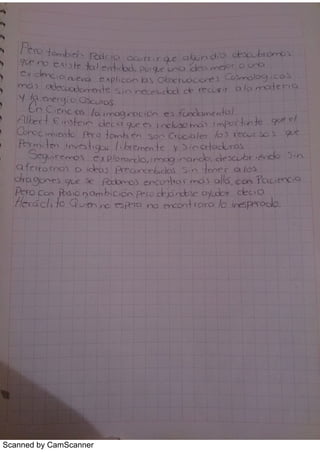 Pero tambien Podria ocurrir que algun dia descubramos
que no existe tal entidad, porque una idea mejor o una
evidencia nueva explican las Observaciones Cosmologicas
más adecuadamente sin necesidad de recurir a la materia
y la energia Oscuras
En Ciencias la imaginación es fundamental
Albert Einstein decia que es incluso mas importante que el
Conocimiento pero tambien son Cruciales los recursos que
Permiten investigar libremente y Sin ataduras
Seguiremos explorando, imaginando, descubriendo Sin
aferrarnos a ideas Preconcebidas Sin temer a los
dragones que se podamos encontrar mas allá, con Paciencia
Pero con Pasion y ambicion pero dejandose ayudar decia
Heráclito Quien no espera no encontrara lo inesperado.
Scanned by CamScanner